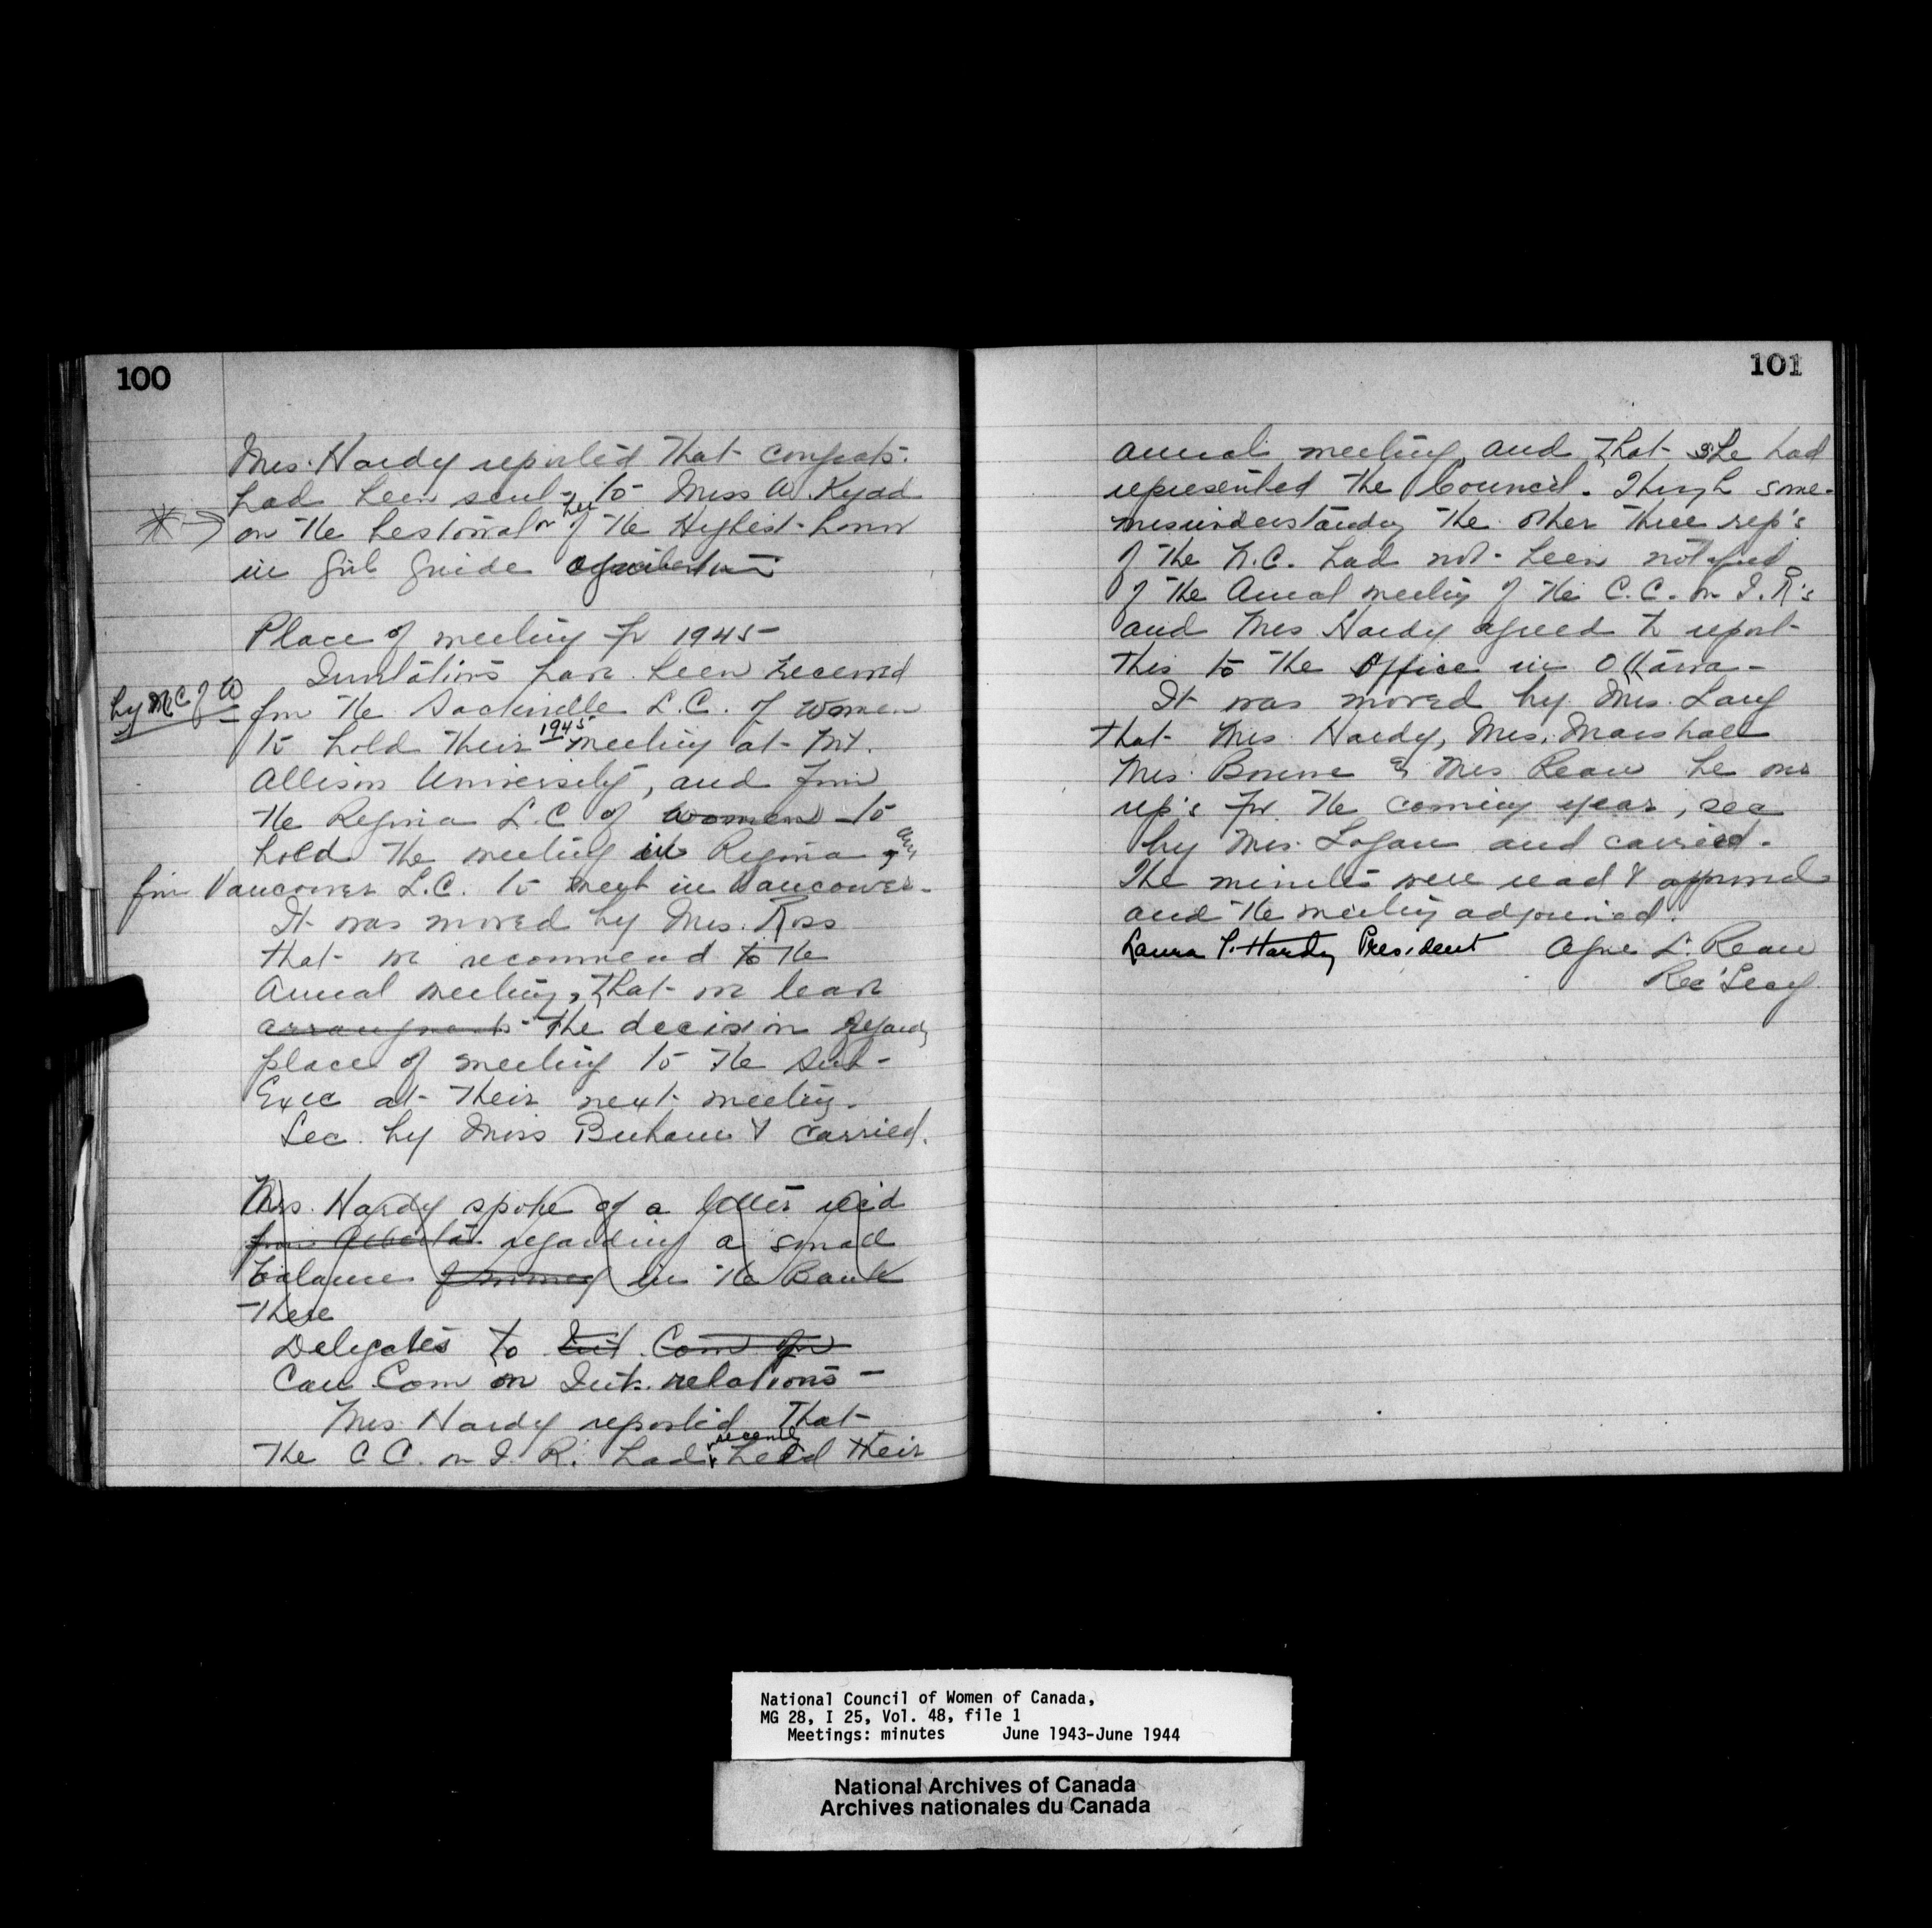 100
Mrs. Hardy reported that congrats.
had been sent to Miss W. Kydd
on the bestowal on her of the Highest honor
in Girl Guide
Place of meeting for 1945
Invitations have been received
by N C of W
from the Sackville L.C. of Women
to hold their 1945 meeting at Mt.
Allison University, and from
the Regina L.C. of Women to
hold the meeting in Regina, and
from Vancouver L.C. to meet in Vancouver.
It was moved by Mrs. Ross
that we recommend to the
Annual meeting, that we leave
arrangments the decision regarding
place of meeting to the Sub-
Exec at their next meeting.
Sec. by Miss & carried.
Mrs. Hardy spoke of a letter rec'd
from Alberta regarding a small
balance of money in the Bank
there
Delegates to Int. Com on
Can Com on Int. relations -
Mrs. Hardy reported that
the C C. on I. R. had recently held their
101
annual meeting, and that she had
represented the Council. Through some
misunderstanding the other three rep's
of the N.C. had not been notified
of the Annual meeting of the C.C. on I.R's
and Mrs Hardy agreed to report
this to the Office in Ottawa -
It was moved by Mrs. Lang
that Mrs. Hardy, Mrs. Marshall
Mrs. & Mrs Reau be our
rep's for the coming year, sec
by Mrs. Logan and carried.
The minutes were read & approved
and the meeting adjourned.
Laura P. Hardy President
L. Reau
Rec Secy.
National Council of Women of Canada,
MG 28, I 25, Vol. 48, file 1
Meetings: minutes June 1943-June 1944
National Archives of Canada
Archives nationales du Canada